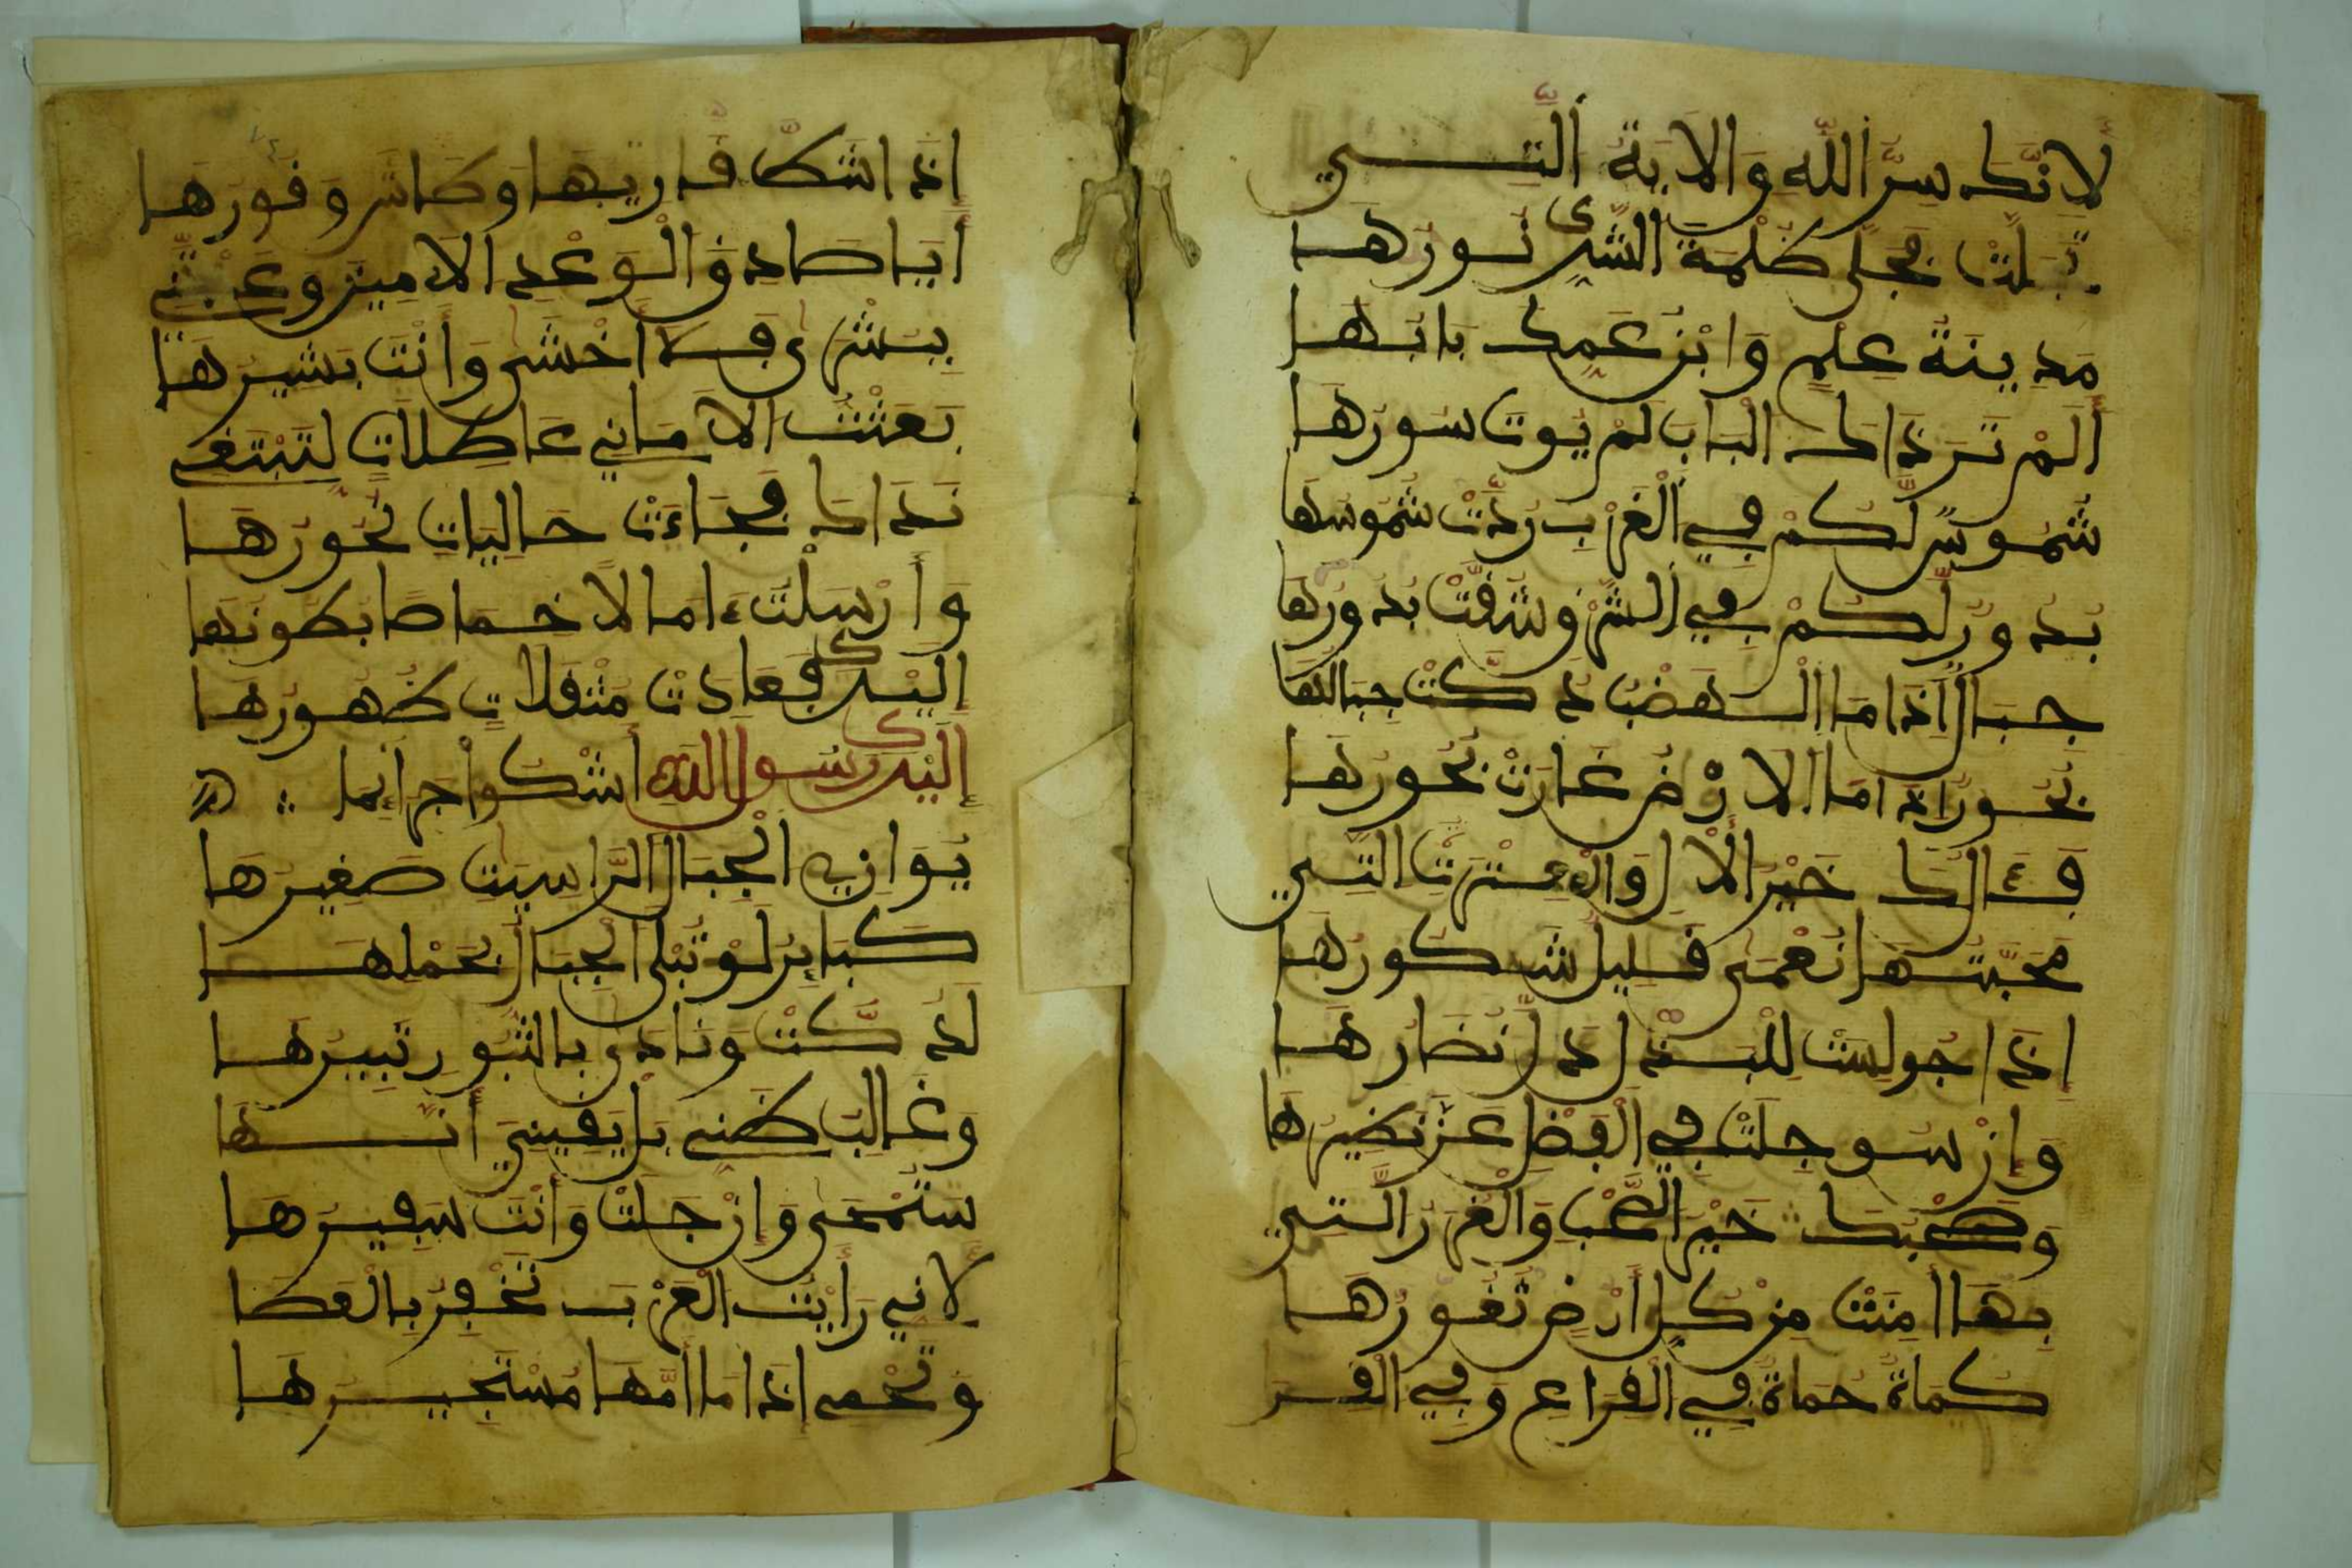 لِأَنَّكَ سِرُّ اللَّهِ وَالْآيَةُ الَّتِي
تَجَلَّتْ فَجَلَّى ظُلْمَةَ الشِّرْكِ نُورُهَا
مَدِينَةُ عِلْمٍ وَابْنُ عَمِّكَ بَابُهَا
أَلَمْ تَرَ ذَاكَ الْبَابَ لَمْ يُوتَ سُورُهَا
شُمُوسٌ لَكُمْ فِي الْغَرْبِ رُدَّتْ شُمُوسُهَا
بُدُورٌ لَكُمْ فِي الشَّرْقِ شُقَّتْ بُدُورُهَا
جِبَالٌ إِذَا مَا الْهَضْبُ دُكَّتْ جِبَالُهَا
بُحُورٌ إِذَا مَا الْأَرْضُ غَارَتْ بُحُورُهَا
فَآلُكَ خَيْرُ الْآلِ وَالْعِتْرَةُ الَّتِي
مَحَبَّتُهَا نُعْمَى قَلِيلٌ شَكُورُهَا
إِذَا جُولِسَتْ لِلْبَذْلِ ذَلَّ نُضَارُهَا
وَإِنْ سُوجِلَتْ فِي الْفَضْلِ عَزَّ نَظِيرُهَا
وَصَحْبُكَ خَيْرُ الصَّحْبِ وَالْغُرَرُ الَّتِي
بِهَا أَمِنَتْ مِنْ كُلِّ أَرْضٍ ثُغُورُهَا
كُمَاةٌ حُمَاةٌ فِي الْقِرَاعِ وَفِي الْقِرَى
إِذَا شَطَّ قَارِيهَا وَطَاشَ وَقُورُهَا
أَيَا صَادِقَ الْوَعْدِ الْأَمِينِ وَعَدْتَنِي
بِبُشْرَى فَلَا أَخْشَى وَأَنْتَ بَشِيرُهَا
بَعَثْتُ الْأَمَانِي عَاطِلَاتٍ لِتَبْتَغِي
نَدَاكَ فَجَاءَتْ حَالِيَاتٍ نُحُورُهَا
وَأَرْسَلْتُ آمَالًا خِمَاصًا بُطُونُهَا
إِلَيْكَ فَعَادَتْ مُثْقَلَاتٍ ظُهُورُهَا
إِلَيْكَ رَسُولَ اللَّهِ أَشْكُو جَرَائِمًا
يُوَازِي الْجِبَالَ الرَّاسِيَاتِ صَغِيرُهَا
كَبَائِرُ لَوْ تُبْلَى الْجِبَالُ بِحَمْلِهَا
لَدُكَّتْ وَنَادَى بِالثُّبُورِ ثَبِيرُهَا
وَغَالِبُ ظَنِّي بَلْ يَقِينِيَ أَنَّهَا
سَتُمْحَى وَإِنْ جَلَّتْ وَأَنْتَ سَفِيرُهَا
لِأَنِّي رَأَيْتُ الْعُرْبَ تَخْفِرُ بِالْعَصَا
وَتَحْمِي إِذَا مَا أَمَّهَا مُسْتَجِيرُهَا